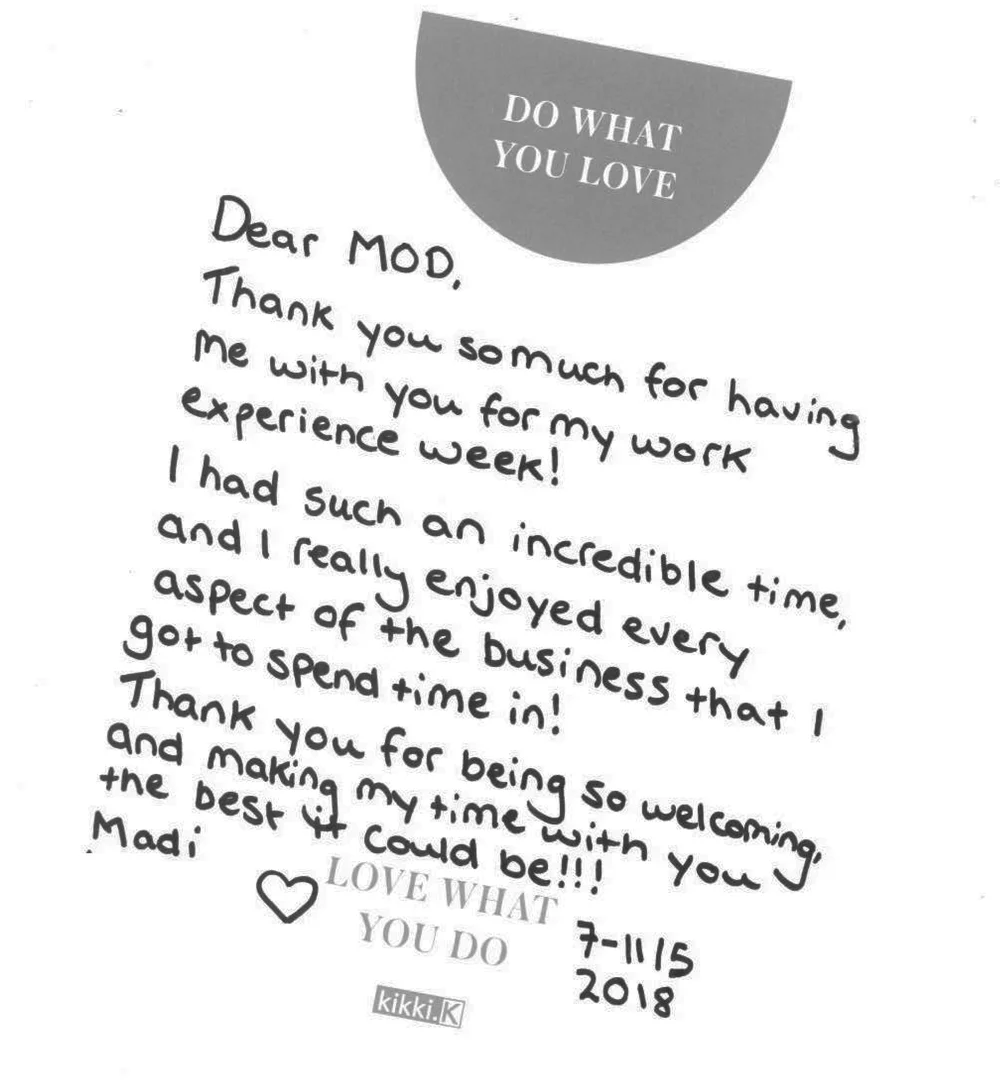 DO WHAT
YOU LOVE
Dear MOD,
Thank you so much for having
me with you for my work
experience week!
I had such an incredible time,
and I really enjoyed every
aspect of the business that I
got to spend time in!
Thank you for being so welcoming,
and making my time with you
the best it could be!!!
Madi
LOVE WHAT
YOU DO
7-11/5
2018
kikki.K